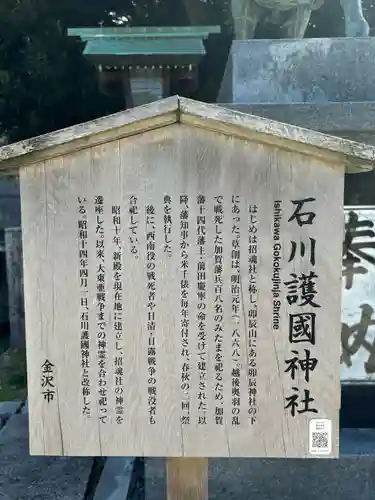 石川護國神社
Ishikawa Gokokujinja Shrine
はじめは招魂社と称し、卯辰山にある卯辰神社の下
にあった。草創は、明治元年（一八六八）越後奥羽の乱
で戦死した加賀藩兵百八名のみたまを祀るため、加賀
藩十四代藩主・前田慶寧の命を受けて建立された。以
降、藩知事から米千俵を毎年寄付され、春秋の二回、祭
典を執行した。
後に、西南役の戦死者や日清・日露戦争の戦没者も
合祀している。
昭和十年、新殿を現在地に建立し、招魂社の神霊を
遷座した。以来、大東亜戦争までの神霊を合わせ祀って
いる。昭和十四年四月一日、石川護國神社と改称した。
金沢市
奉